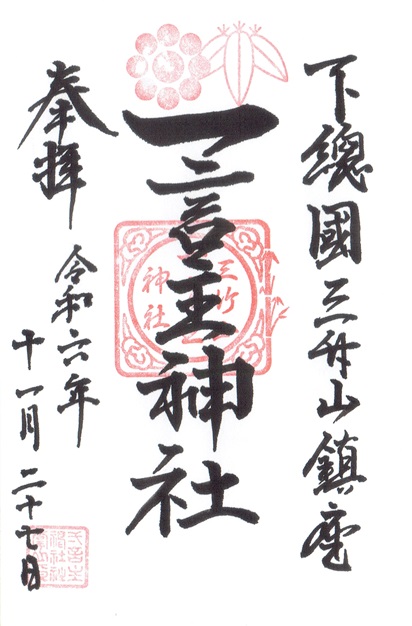 下總國三竹山鎮座
一言主神社
奉拝
令和六年
十一月二十七日
三竹
神社